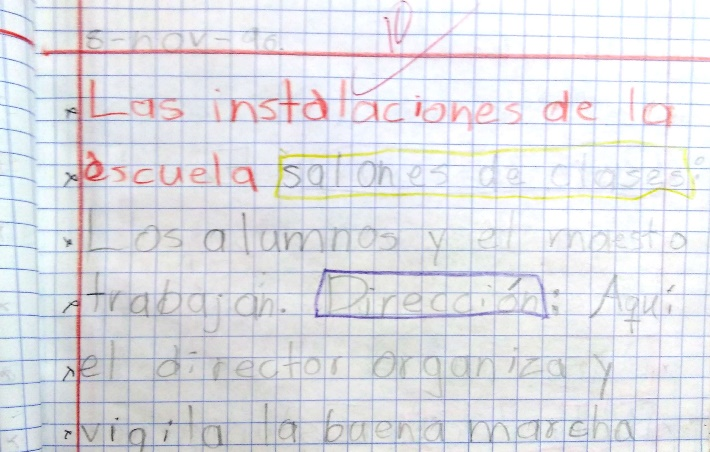 5-nov-96. 10
Las instalaciones de la
escuela salones de clases:
Los alumnos y el maestro
trabajan. Dirección: Aquí
el director organiza y
vigila la buena marcha